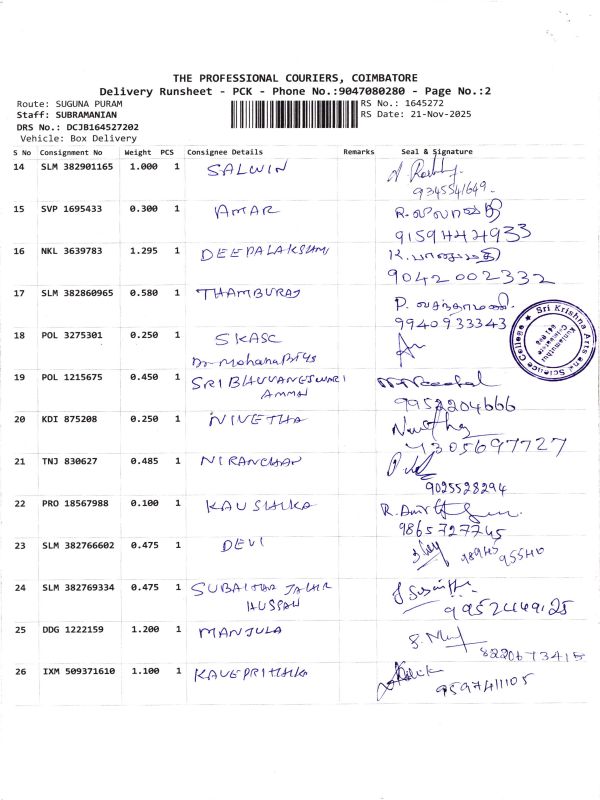 THE PROFESSIONAL COURIERS, COIMBATORE
Delivery Runsheet - PCK - Phone No.:9047080280 - Page No.:2
Route: SUGUNA PURAM RS No.: 1645272
Staff: SUBRAMANIAN RS Date: 21-Nov-2025
DRS No.: DCJB164527202
Vehicle: Box Delivery
S No Consignment No Weight PCS Consignee Details Remarks Seal & Signature
14 SLM 382901165 1.000 1 SALWIN
9345541649
15 SVP 1695433 0.300 1 AMAR
9159442933
16 NKL 3639783 1.295 1 DEEPALAKSHMI
9042002332
17 SLM 382860965 0.580 1 THAMBURAJ
9940933343
18 POL 3275301 0.250 1 SKASC
Dr Mohana
Sri Krishna Arts and Science College
19 POL 1215675 0.450 1 SRI BHUVANESWARI
AMMAN
9952204666
20 KDI 875208 0.250 1 NIVETHA
7305697727
21 TNJ 830627 0.485 1 NIRANCHAN
9025528294
22 PRO 18567988 0.100 1 KAUSHIKA
9865727745
23 SLM 382766602 0.475 1 DEVI
24 SLM 382769334 0.475 1
HUSSAN
9952449125
25 DDG 1222159 1.200 1 MANJULA
8220673415
26 IXM 509371610 1.100 1 KAVEPRITHIKA
9597411105